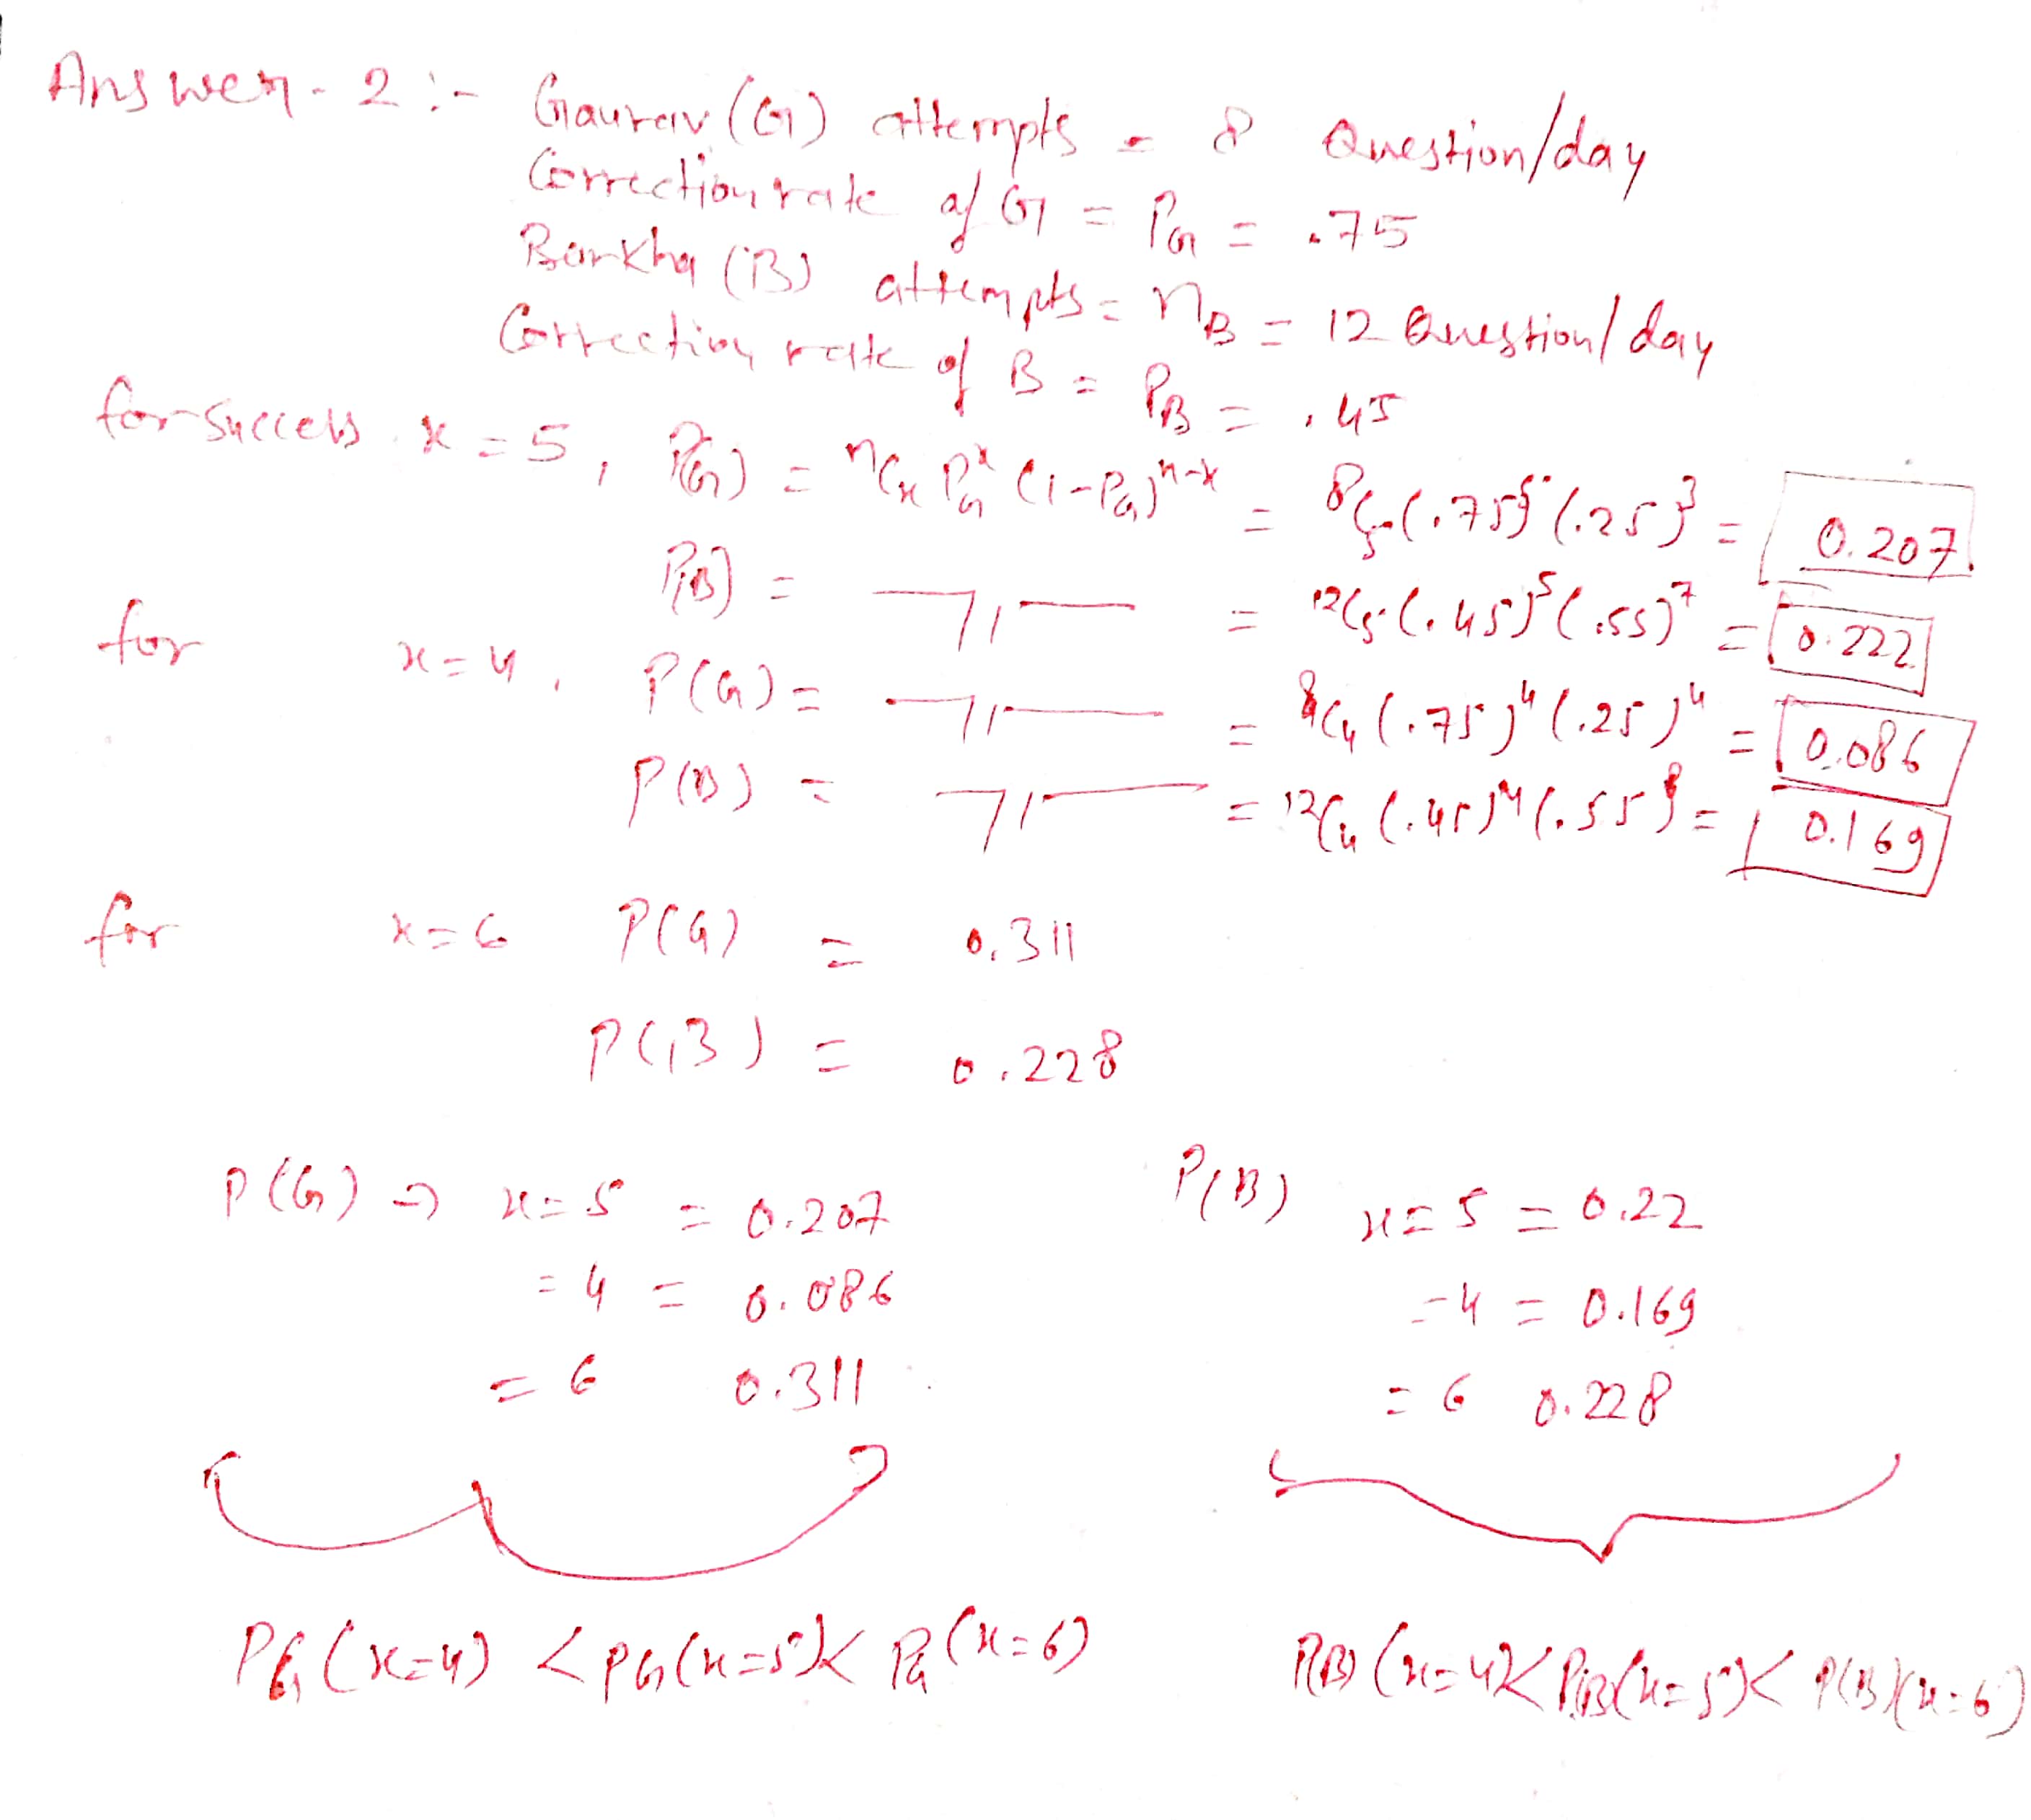 Answer - 2 :- Gaurav (G) attempts = 8 Question/day
Correction rate of G = P_G = .75
Barkha (B) attempts = n_B = 12 Question/day
Correction rate of B = P_B = .45
for success x = 5, P(G) = ⁿCₓ P_G^x (1-P_G)^n-x = ⁸C₅ (.75)⁵ (.25)³ = 0.207
P(B) = —〃— = ¹²C₅ (.45)⁵ (.55)⁷ = 0.222
for x = 4, P(G) = —〃— = ⁸C₄ (.75)⁴ (.25)⁴ = 0.086
P(B) = —〃— = ¹²C₄ (.45)⁴ (.55)⁸ = 0.169
for x = 6 P(G) = 0.311
P(B) = 0.228
P(G) => x = 5 = 0.207
= 4 = 0.086
= 6 0.311
P(B) x = 5 = 0.22
= 4 = 0.169
= 6 0.228
P_G (x=4) < P_G (x=5) < P_G (x=6)
P(B) (x=4) < P(B) (x=5) < P(B) (x=6)